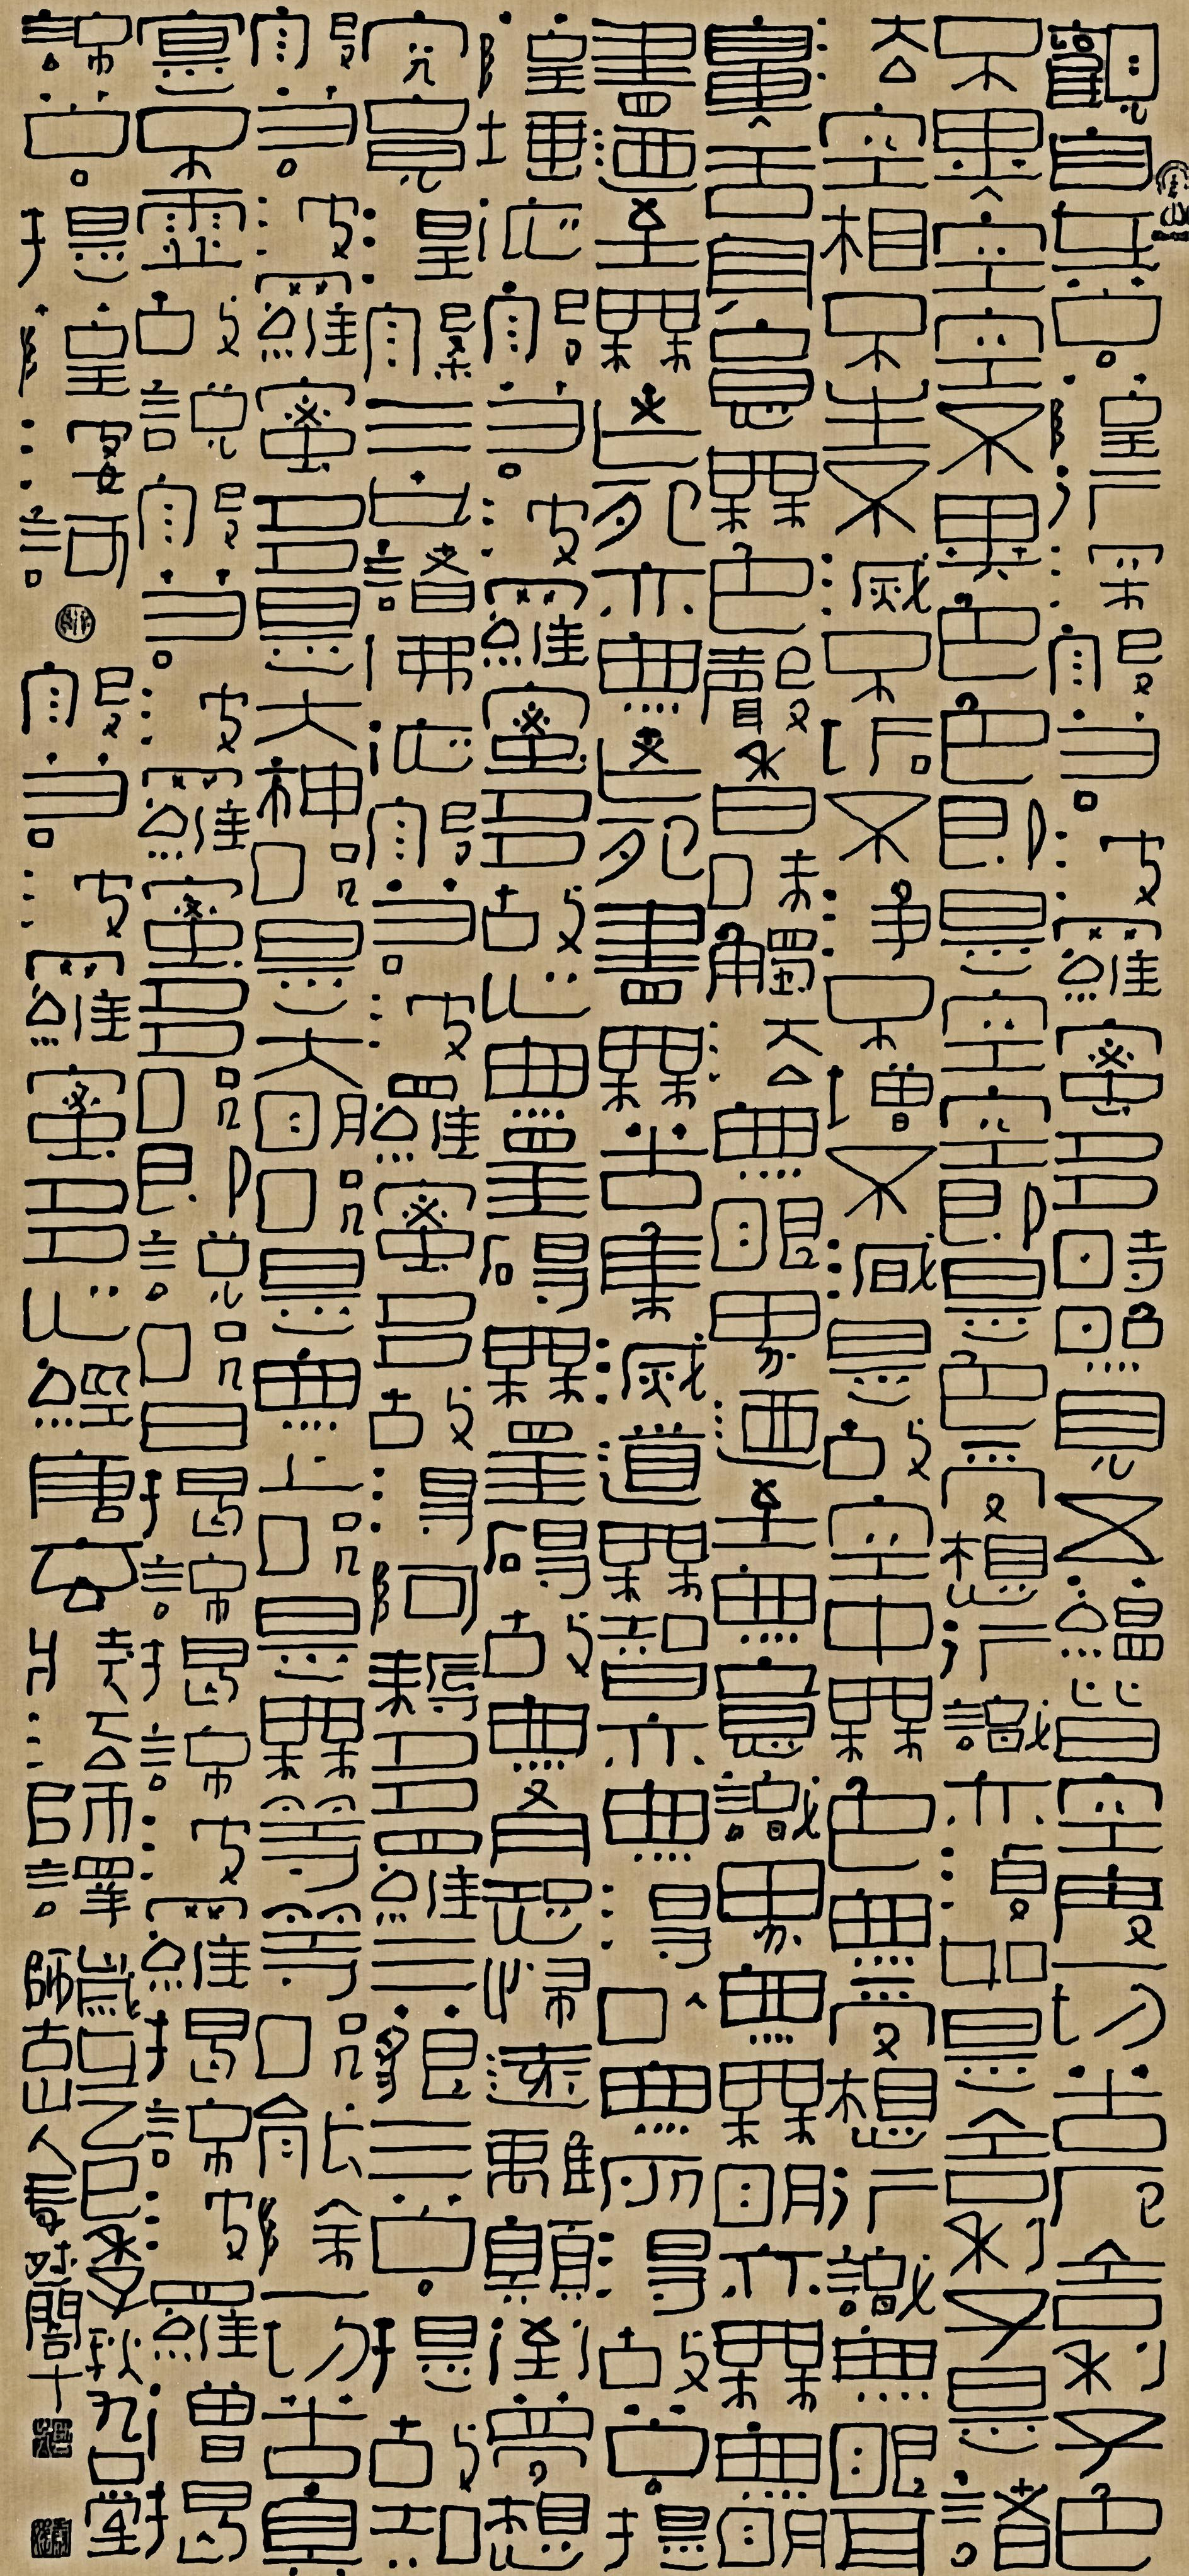 觀自在菩薩行深般若波羅蜜多時照見五蘊皆空度一切苦厄舍利子色
不異空空不異色色即是空空即是色受想行識亦復如是舍利子是諸
法空相不生不滅不垢不淨不增不減是故空中無色無受想行識無眼耳
鼻舌身意無色聲香味觸法無眼界乃至無意識界無無明亦無無明
盡乃至無老死亦無老死盡無苦集滅道無智亦無得以無所得故菩提
薩埵依般若波羅蜜多故心無罣礙無罣礙故無有恐怖遠離顛倒夢想
究竟涅槃三世諸佛依般若波羅蜜多故得阿耨多羅三藐三菩提故知
般若波羅蜜多是大神咒是大明咒是無上咒是無等等咒能除一切苦真
實不虛故說般若波羅蜜多咒即說咒曰揭諦揭諦波羅揭諦波羅僧揭
諦菩提薩婆訶般若波羅蜜多心經唐玄奘法師譯
歲乙巳季秋九堂
師古山人